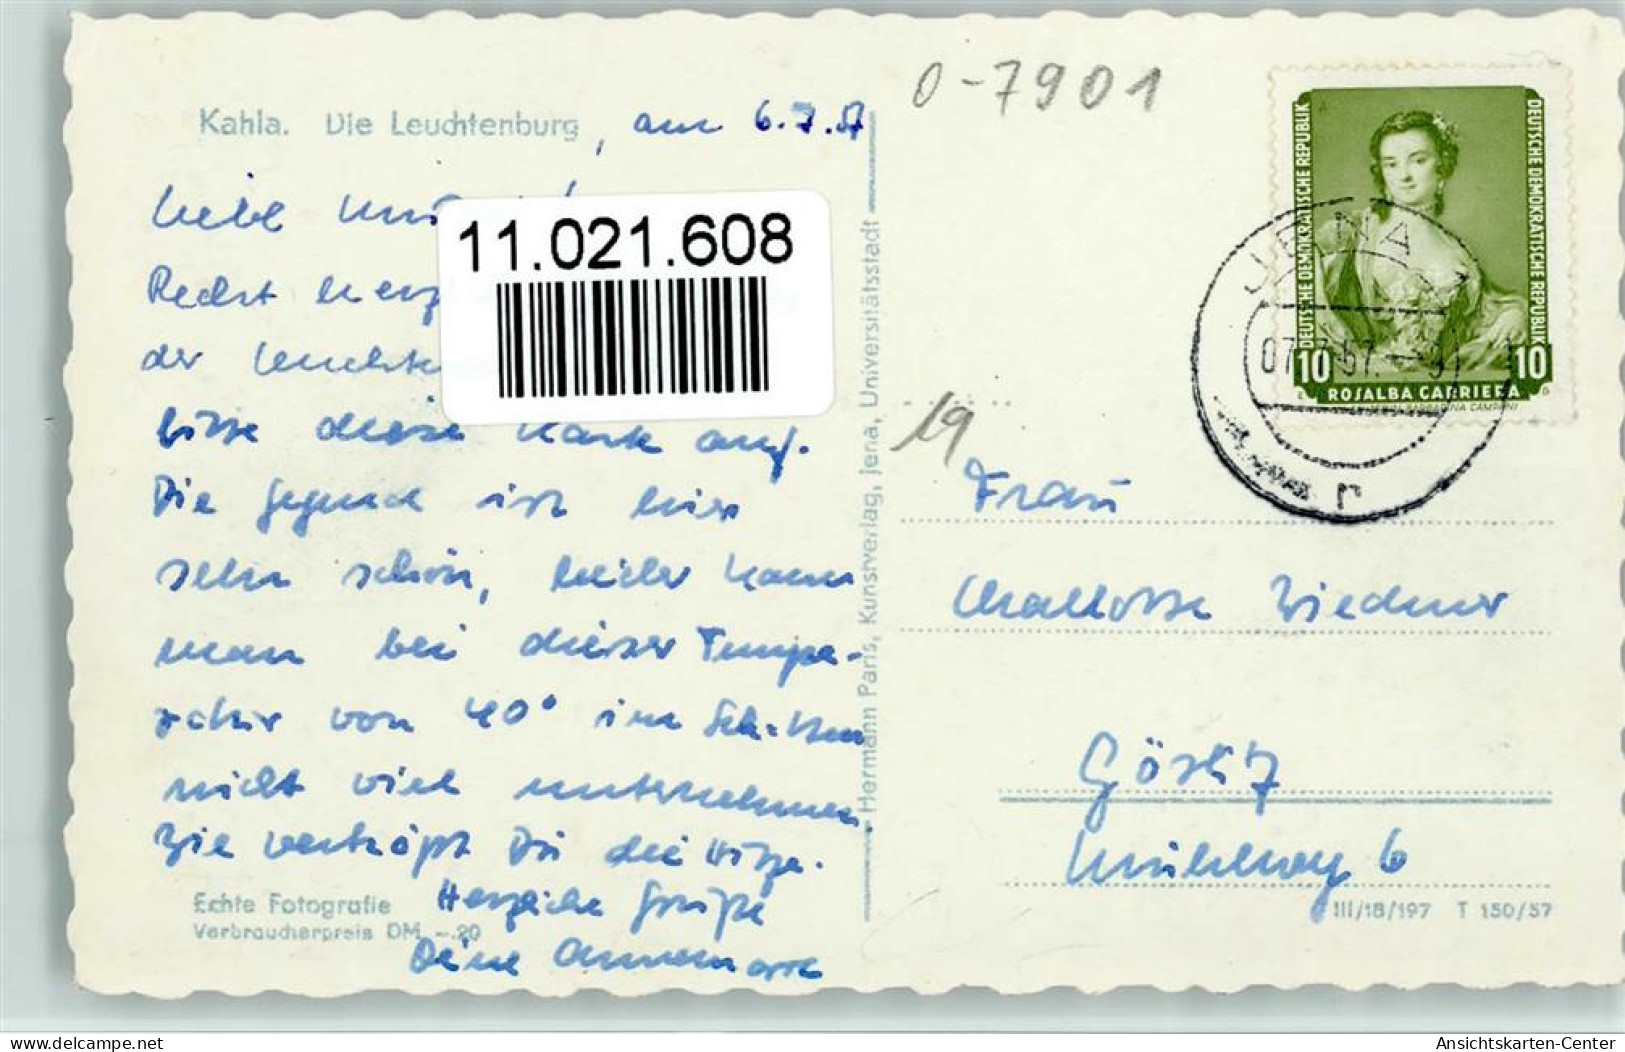 Kahla. Die Leuchtenburg, am 6.7.57
Liebe
Recht
der
bitte diese Karte auf.
Die Gegend ist hier
sehr schön, leider kann
man bei dieser Tempe-
ratur von 40° im Schatten
nicht viel unternehmen.
Wie verträgst Du die Hitze.
Herzliche Grüße
Deine Annemarie
Echte Fotografie
Verbraucherpreis DM -.20
11.021.608
Hermann Paris, Kunstverlag, Jena, Universitätsstadt
0-7901
19
DEUTSCHE DEMOKRATISCHE REPUBLIK
DEUTSCHE DEMOKRATISCHE REPUBLIK
10 10
ROSALBA CARRIERA
JENA 1
r
Frau
Charlotte
Görlitz
Mühlweg 6
III/18/197 T 150/57
Ansichtskarten-Center auf www.delcampe.net